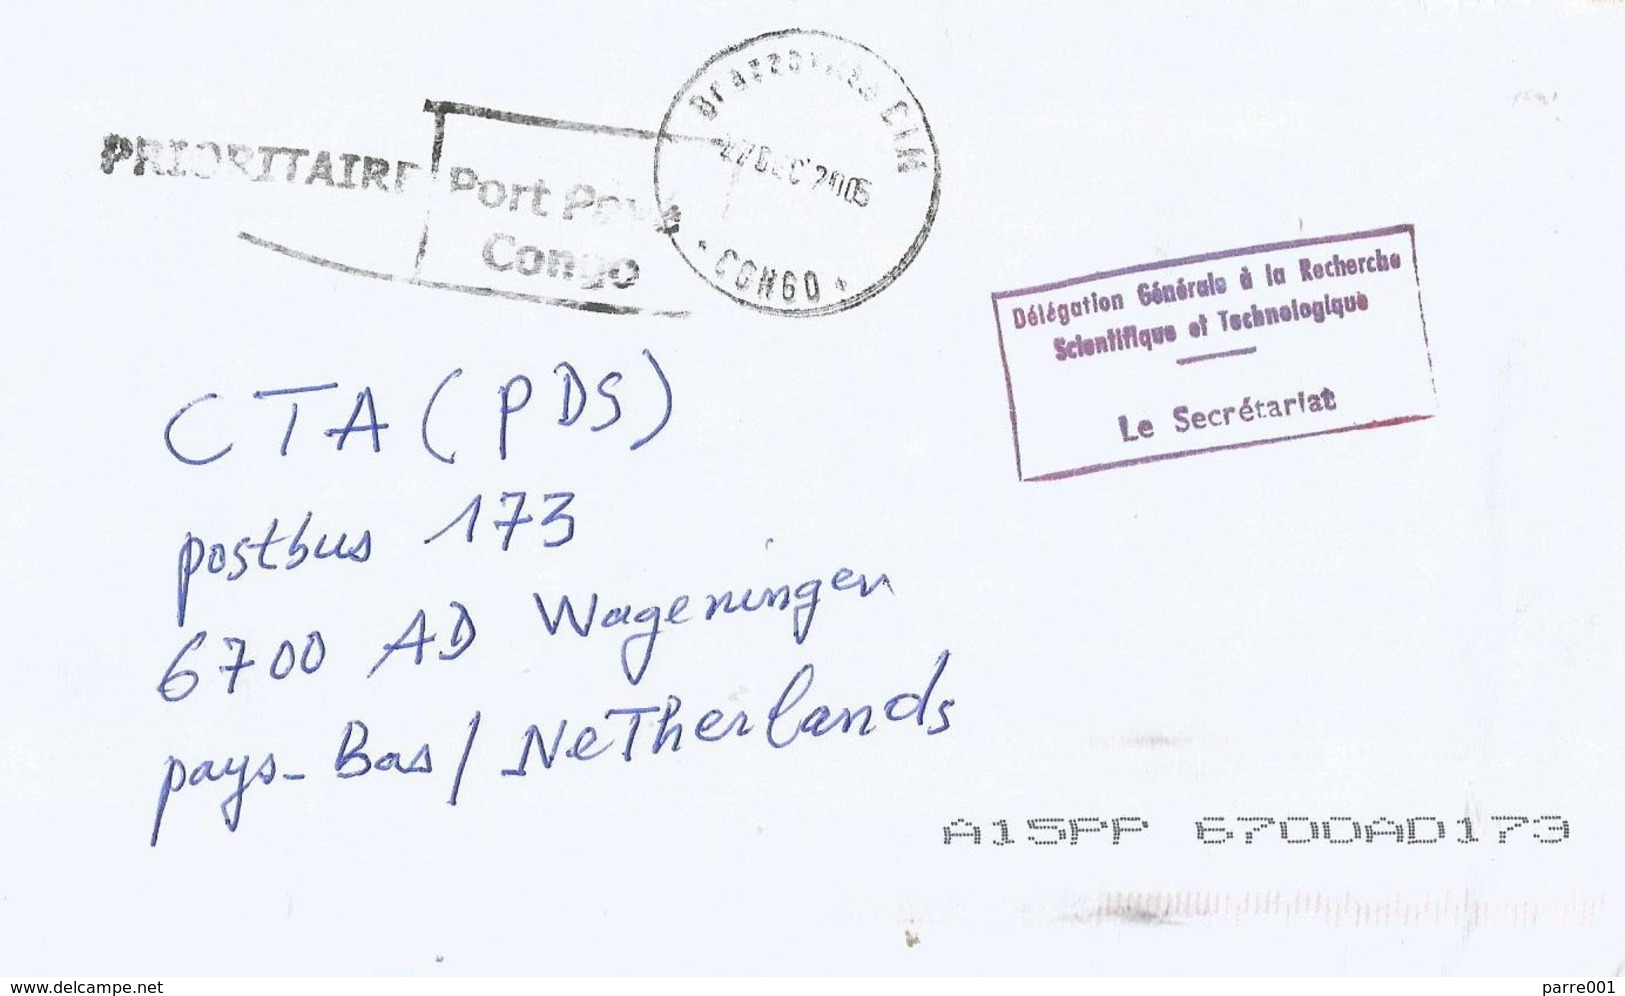 Brazzaville CIM
27 DEC 2005
CONGO
PRIORITAIRE
Port Payé
Congo
Délégation Générale à la Recherche
Scientifique et Technologique
Le Secrétariat
CTA (PDS)
postbus 173
6700 AD Wageningen
pays-Bas / NeTherlands
A15PP 6700AD173
www.delcampe.net
parre001